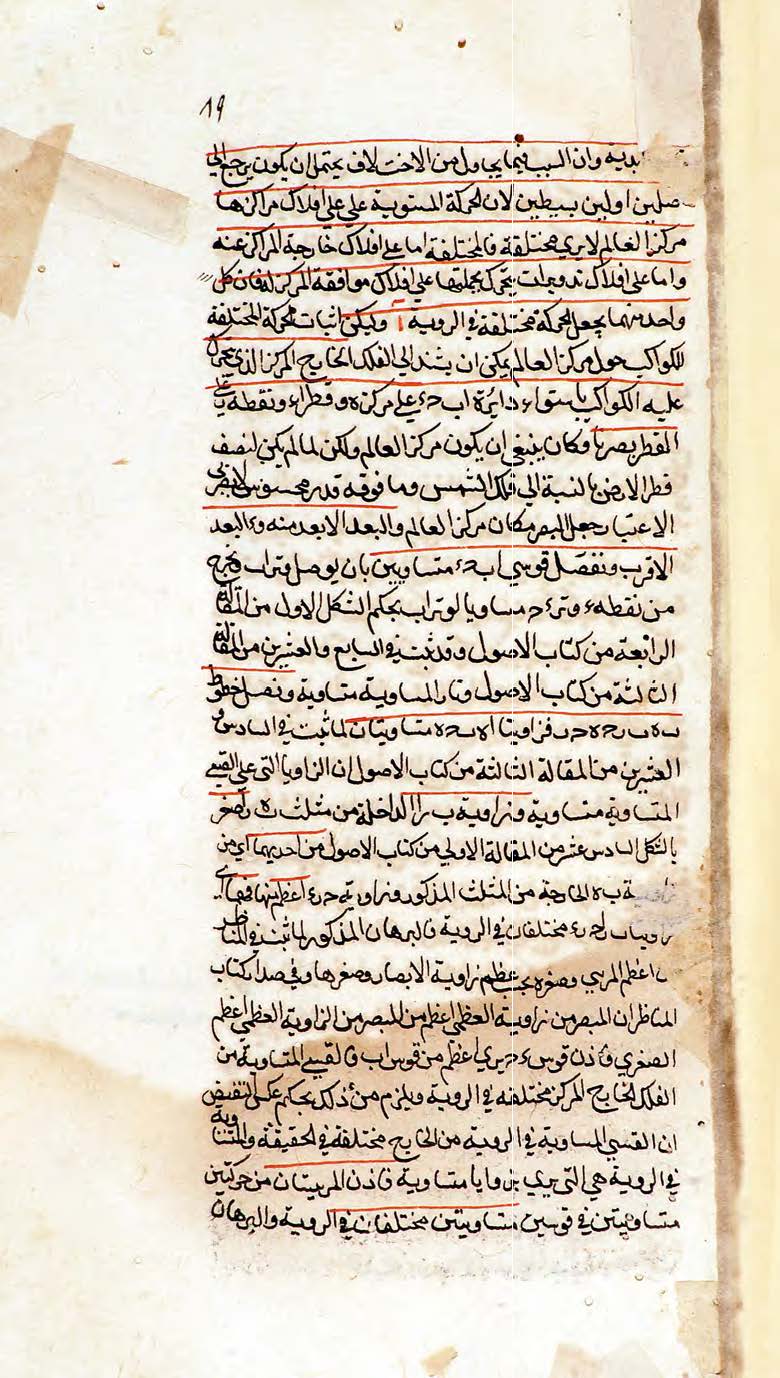 ١٩
بدية وان السبب فيما يحاول من الاختلاف يحتمل ان يكون يرجع الي
صلين اولين بسيطين لان الحركة المستوية علي علي افلاك مراكزها
مركز العالم لا يري مختلفة فالمختلفة اما علي افلاك خارجة المراكز عنه
واما علي افلاك تدويرات يتحرك بجملتها علي افلاك موافقة المركز له فان كل
واحد منهما يجعل الحركة مختلفة في الروية آ وليكن اثبات الحركة المختلفة
للكواكب حول مركز العالم يمكن ان يستند الي الفلك الخارج المركز الذي يتحرك
عليه الكواكب باستواء دايرة اب حء علي مركز ه وقطر اء ونقطة ر علي
القطر بصرنا وكان ينبغي ان يكون مركز العالم ولكن لما لم يكن لنصف
قطر الارض بالنسبة الي فلك الشمس وما فوقه قدر محسوس لا يضر في
الاعتبار جعل البصر مكان مركز العالم والبعد الابعد منه وء البعد
الاقرب ونفصل قوسي اب حء متساويين بان يوصل وتر اب ونخرج
من نقطة ء وتر ء ح مساويا لوتر اب بحكم الشكل الاول من المقالة
الرابعة من كتاب الاصول وقد ثبت في السابع والعشرين من المقالة
الثالثة من كتاب الاصول وتار المساوية متساوية ونصل خطوط
ب ه ب ر ح ه ح ر فزاويتا اه ب ح ه ء متساويتان لما ثبت في السادس و
العشرين من المقالة الثالثة من كتاب الاصول ان الزوايا التي علي القسي
المتساوية متساوية وزاوية ب ر ا الداخلة من مثلث ب ه ر اصغر
بالشكل السادس عشر من المقالة الاولي من كتاب الاصول من احديهما اي من
ة ب ه ا الخارجة من المثلث المذكور وزاوية ح ر ء اعظم منها فهما
زاويتا ب ر ا ح ر ء مختلفان في الروية فالبرهان المذكور لما ثبت في المناظر
ن اعظم المريي وصغره بحسب عظم زاوية الابصار وصغرها وفي صدر كتاب
المناظر ان المبصر من زاوية العظمي اعظم من المبصر من الزاوية العظمي اعظم
الصغري فاذن قوس ء ح يري اعظم من قوس اب فالقسي المتساوية من
الفلك الخارج المركز مختلفة في الروية ويلزم من ذلك بحكم عكس النقيض
ان القسي المساوية في الروية من الخارج مختلفة في الحقيقة والمتساوية
في الروية هي التي يري بزوايا متساوية فاذن المرييتان من حركتين
متساويتين في قوسين متساويتين مختلفان في الروية والبرهان